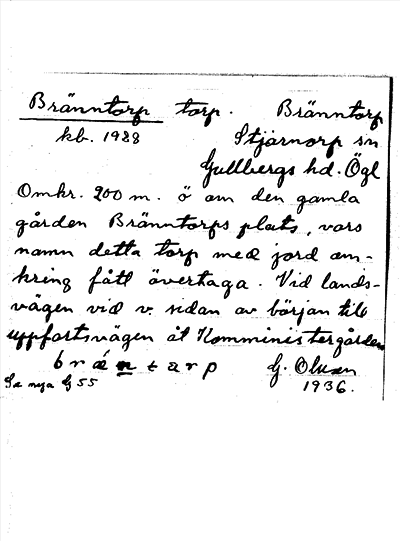 Bränntorp torp. Bränntorp
kb. 1928 Stjärnorp sn
Gullbergs hd. Ögl
Omkr. 200 m. ö om den gamla
gården Bränntorps plats, vars
namn detta torp med jord om-
kring fått övertaga. Vid lands-
vägen vid v. sidan av början till
uppfartsvägen åt Komministergården
G. Olsson
Se nya G 55 1936.